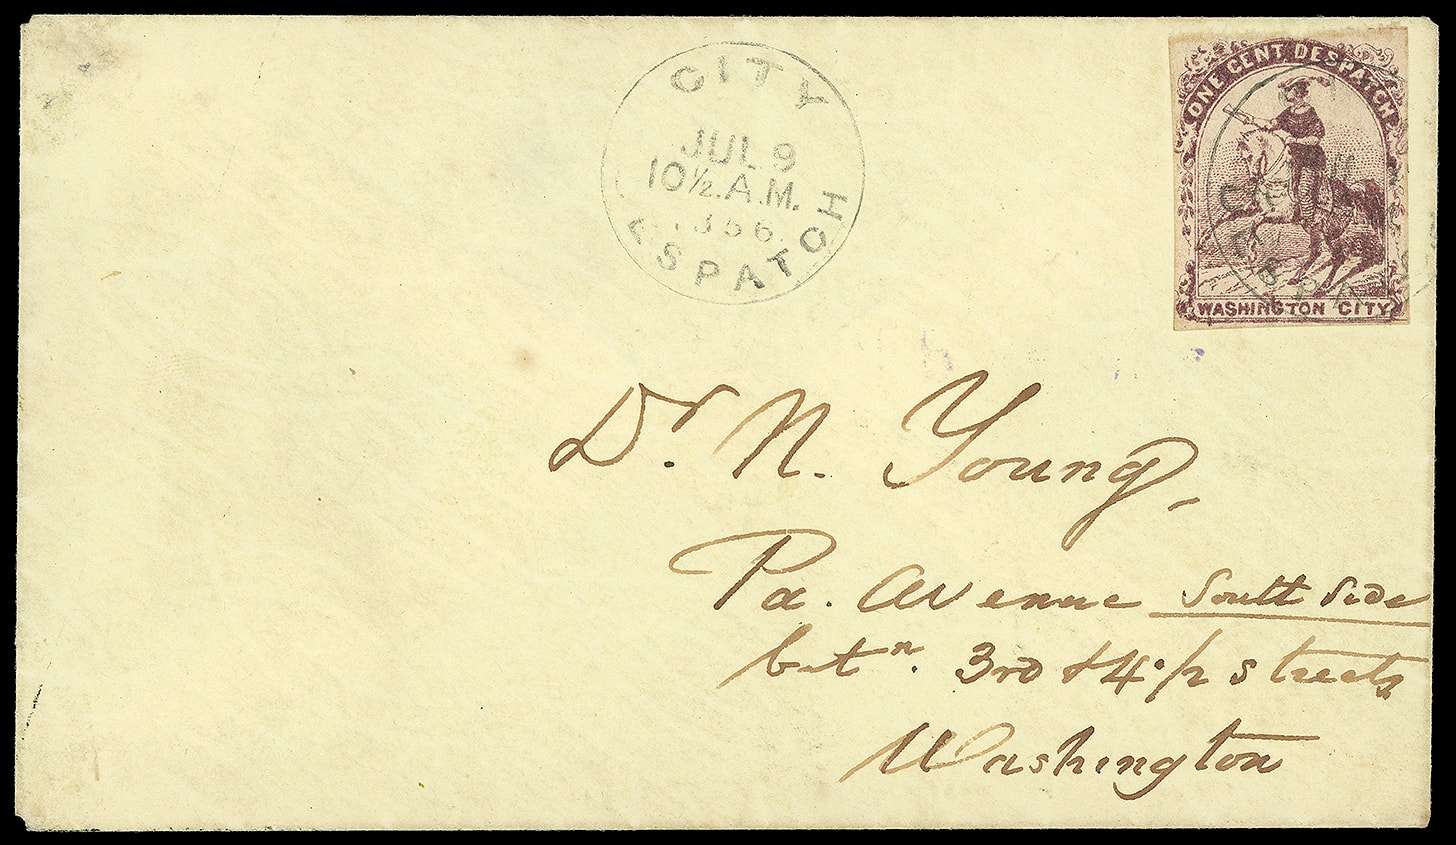 CITY
JUL 9
10½ A.M.
1856.
ESPATCH
ONE CENT DESPATCH
WASHINGTON CITY
Dr. N. Young,
Pa. Avenue South Side
betn. 3rd & 4½ streets
Washington